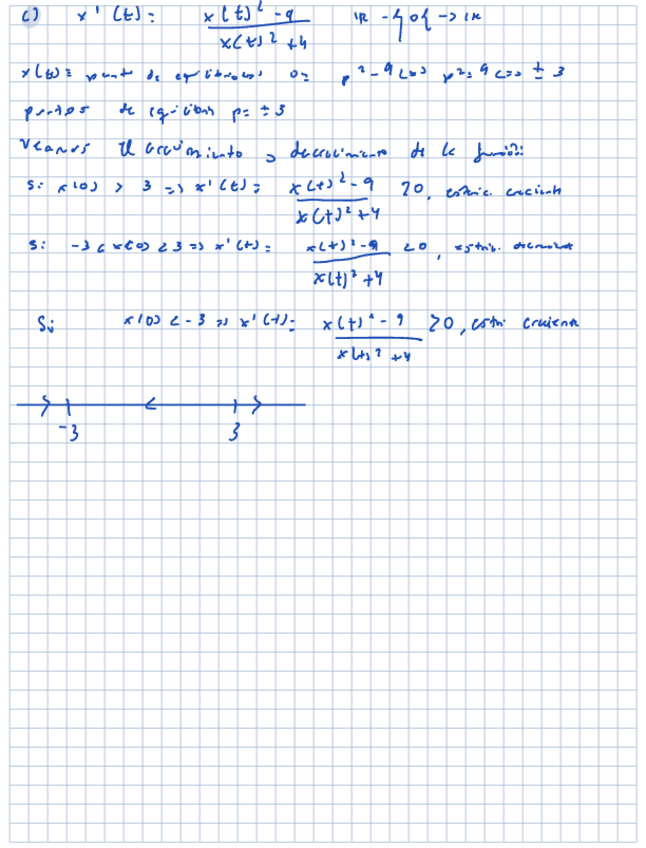 c) x'(t) = x(t)² - 9 / x(t)² + 4 ℝ - {0} -> ℝ
x(t) = punto de equilibrio 0 = p² - 9 <=> p² = 9 <=> ± 3
puntos de equilibrio p = ± 3
Veamos el crecimiento y decrecimiento de la función:
Si x(0) > 3 => x'(t) = x(t)² - 9 / x(t)² + 4 > 0, estric. creciente
Si -3 < x(0) < 3 => x'(t) = x(t)² - 9 / x(t)² + 4 < 0, estric. decreciente
Si x(0) < -3 => x'(t) = x(t)² - 9 / x(t)² + 4 > 0, estri creciente
-3 3